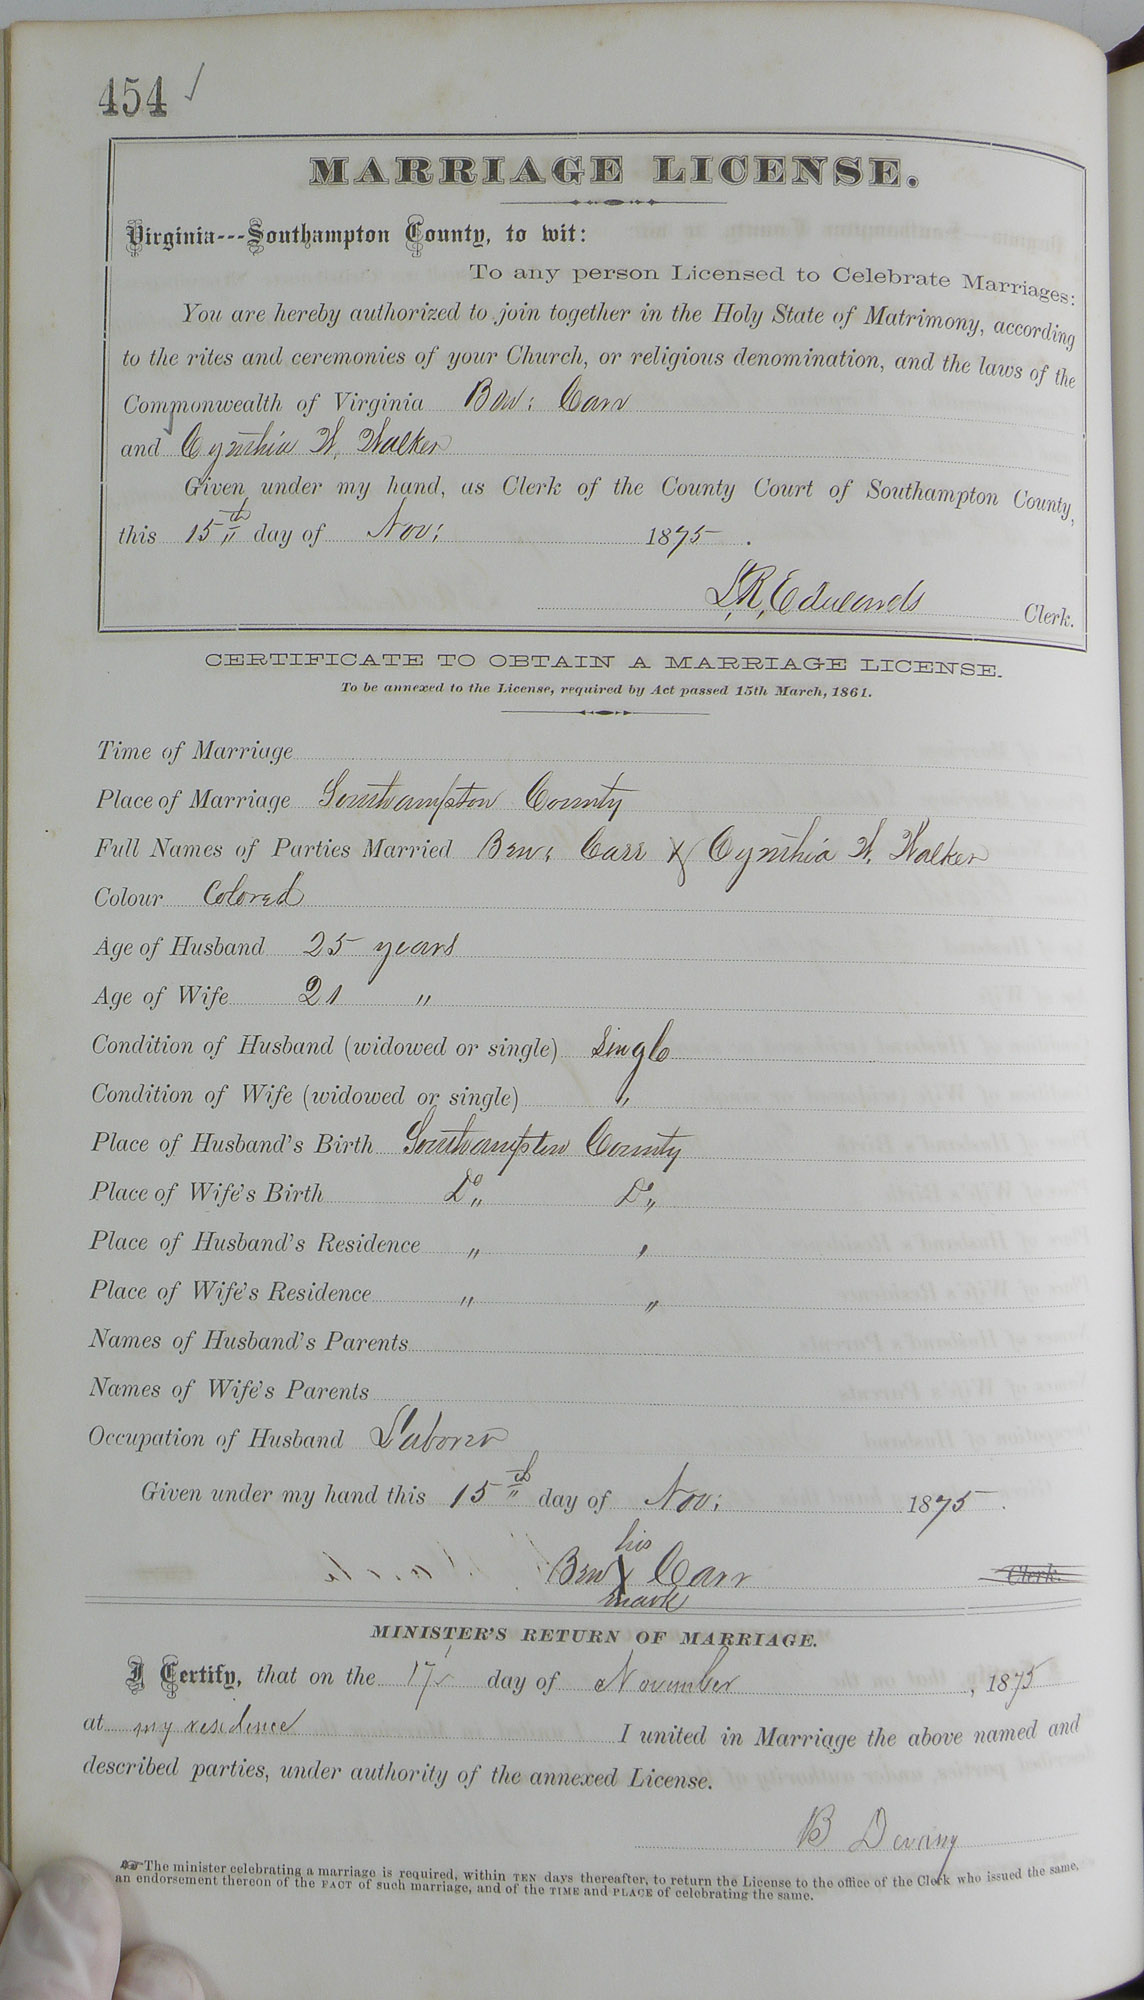 454 ✓
MARRIAGE LICENSE.
Virginia---Southampton County, to wit:
To any person Licensed to Celebrate Marriages:
You are hereby authorized to join together in the Holy State of Matrimony, according
to the rites and ceremonies of your Church, or religious denomination, and the laws of the
Commonwealth of Virginia Ben: Carr
and Cynthia W. Walker
Given under my hand, as Clerk of the County Court of Southampton County,
this 15th day of Nov: 1875.
L. R. Edwards Clerk.
CERTIFICATE TO OBTAIN A MARRIAGE LICENSE.
To be annexed to the License, required by Act passed 15th March, 1861.
Time of Marriage
Place of Marriage Southampton County
Full Names of Parties Married Ben: Carr & Cynthia W. Walker
Colour Colored
Age of Husband 25 years
Age of Wife 21 "
Condition of Husband (widowed or single) Single
Condition of Wife (widowed or single) "
Place of Husband's Birth Southampton County
Place of Wife's Birth Do Do
Place of Husband's Residence " "
Place of Wife's Residence " "
Names of Husband's Parents
Names of Wife's Parents
Occupation of Husband Laborer
Given under my hand this 15th day of Nov: 1875.
his
Ben X Carr Clerk.
mark
MINISTER'S RETURN OF MARRIAGE.
I Certify, that on the 17 day of November, 1875
at my residence I united in Marriage the above named and
described parties, under authority of the annexed License.
B Devany
The minister celebrating a marriage is required, within TEN days thereafter, to return the License to the office of the Clerk who issued the same,
an endorsement thereon of the FACT of such marriage, and of the TIME and PLACE of celebrating the same.